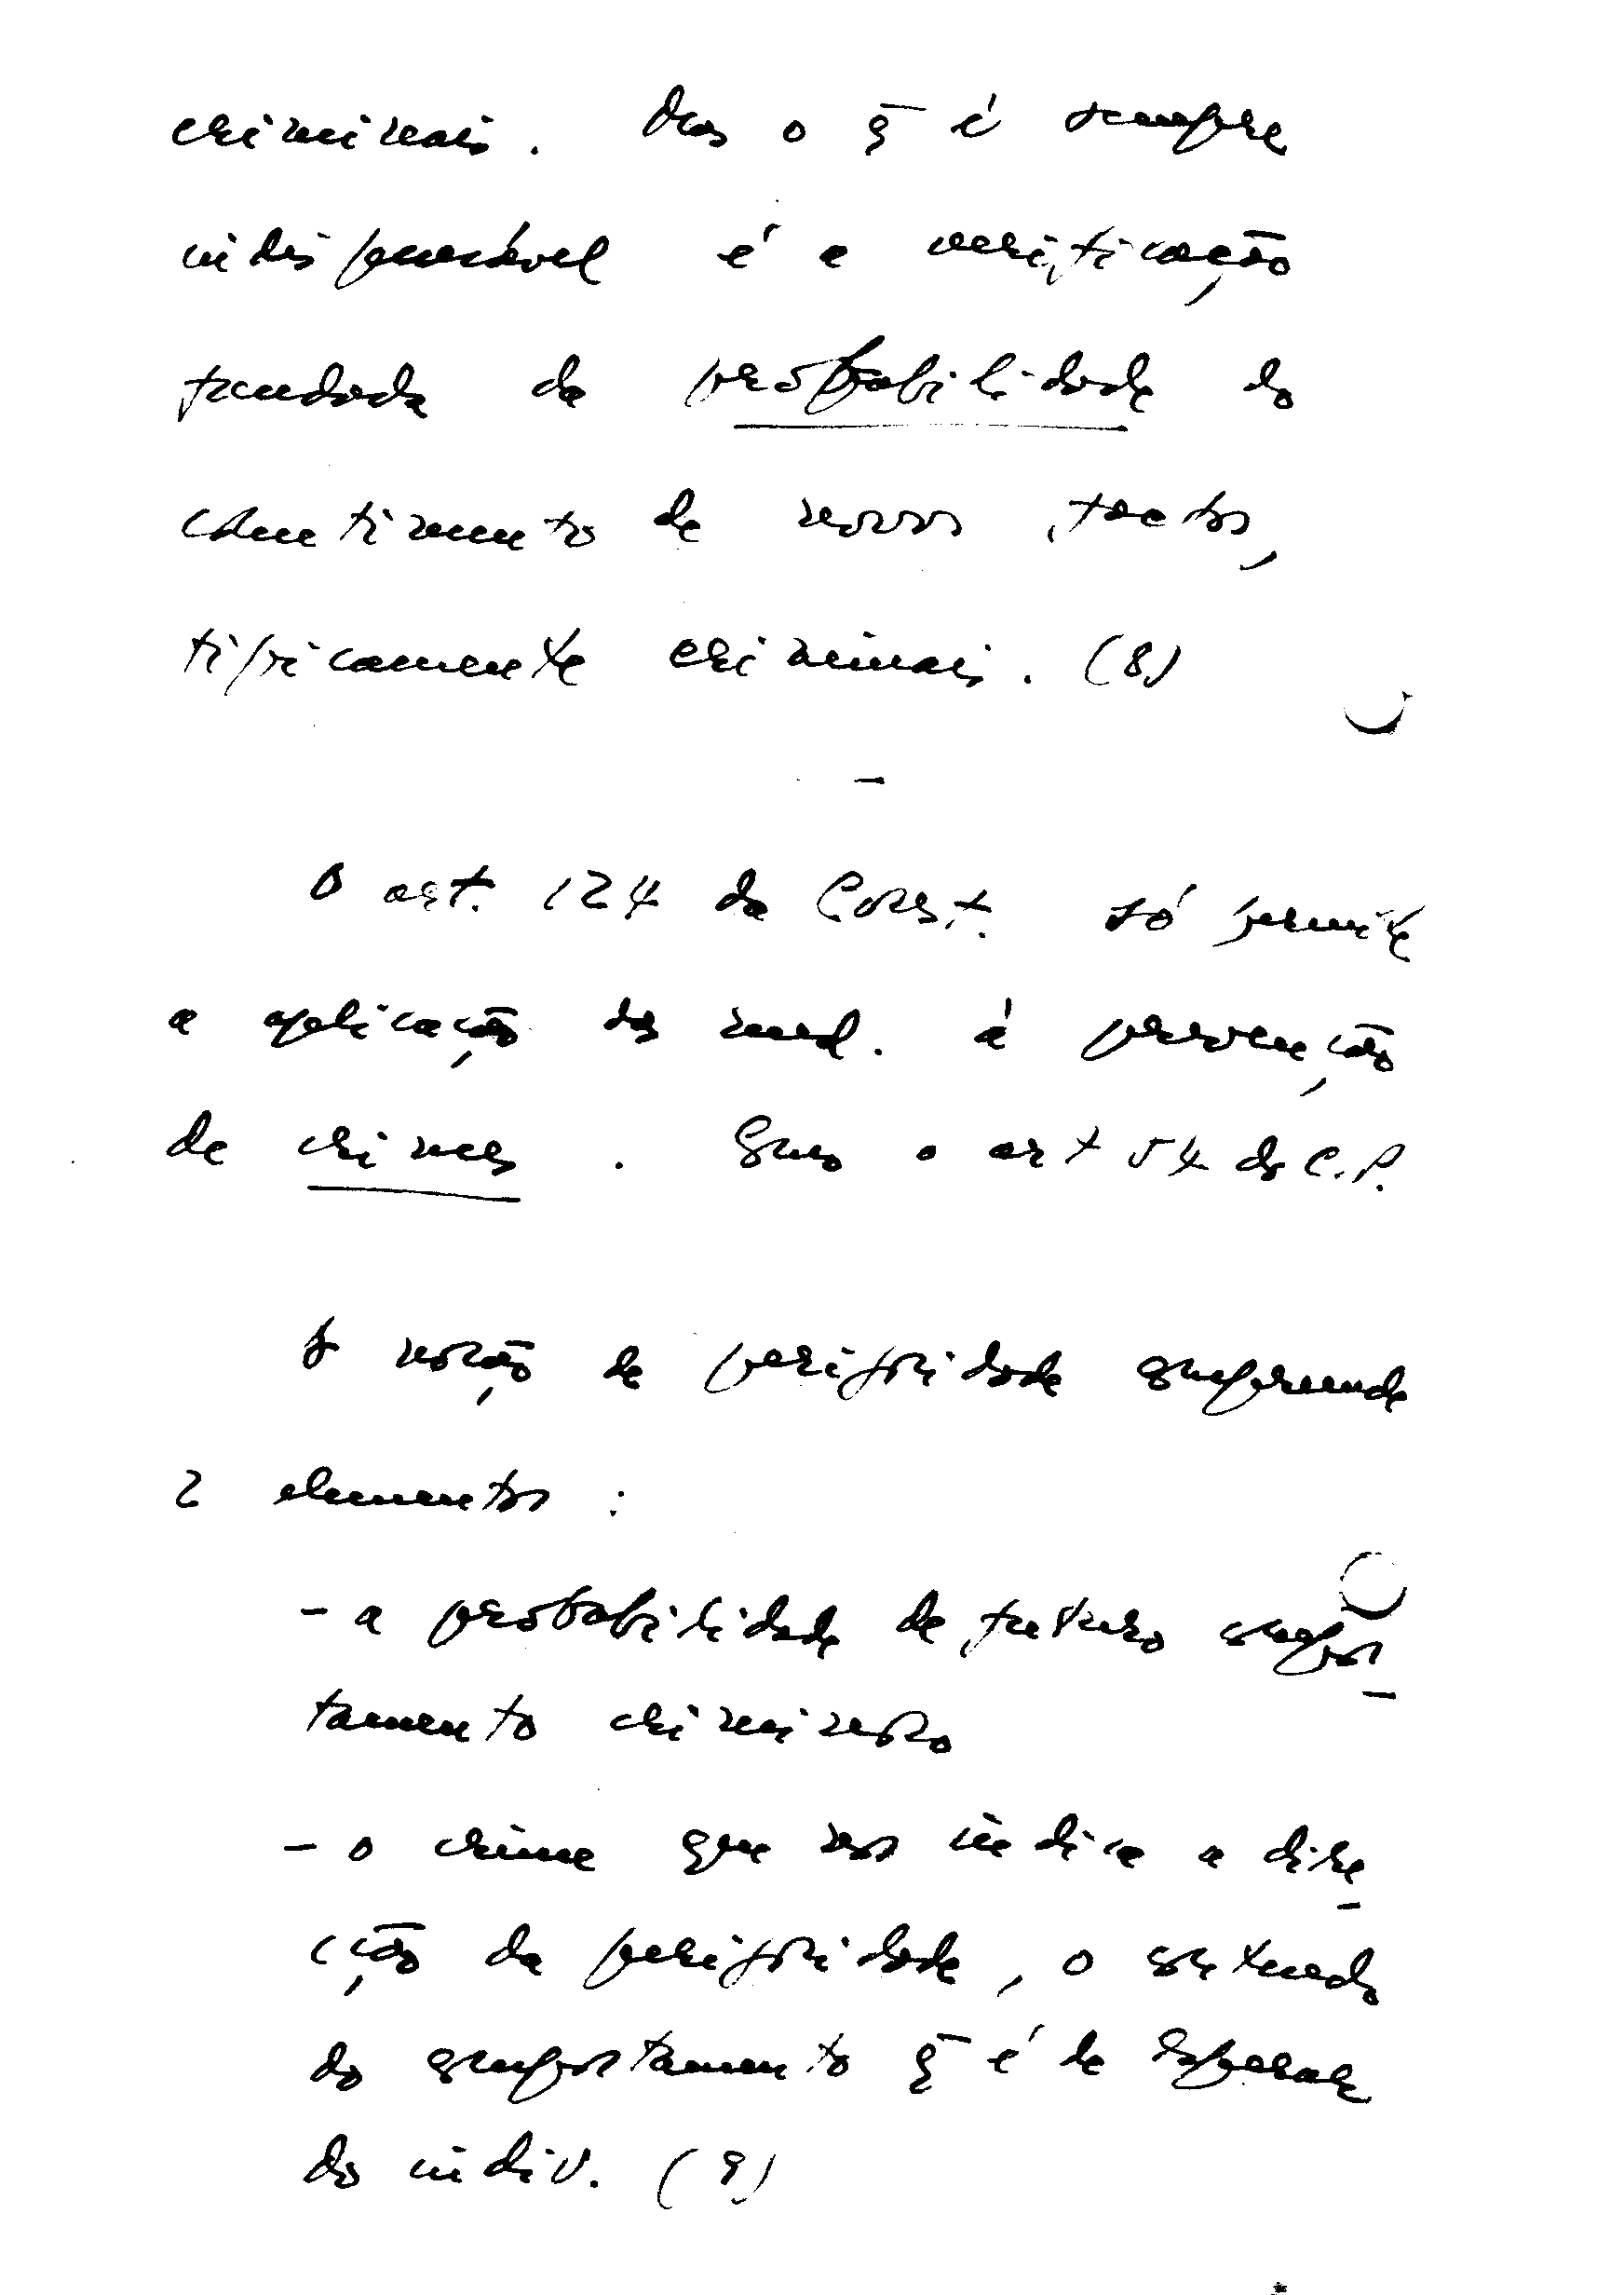 criminais. Mas o q̄ é sempre
indispensável é a verificação
fundada da probabilidade do
cometimento de novos factos,
tipicamente criminais. (8)
—
O art. 124 da Const. só permite
a aplicação das med. à prevenção
de crimes. o art 54 do C.P.
A noção de perigosidade compreende
2 elementos :
- a probabilidade de futuro compor-
tamento criminoso
- o crime que nos indica a dire-
cção da perigosidade, o conteúdo
do comportamento q̄ é de esperar
do indiv. (9)